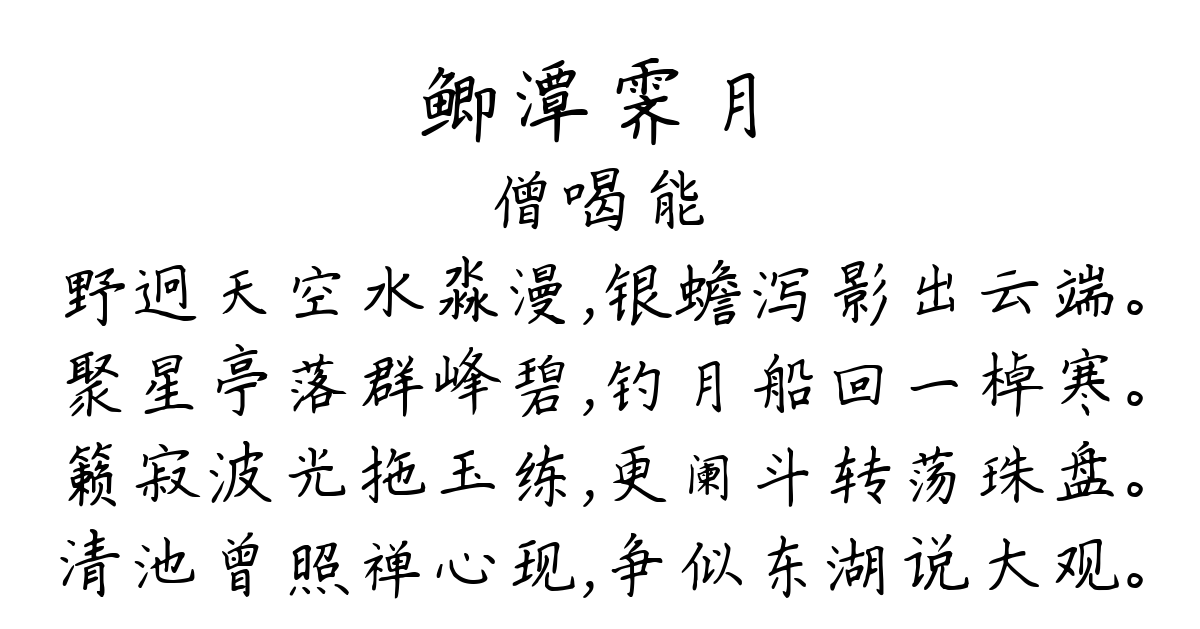 鲫潭霁月
僧喝能
野迥天空水淼漫,银蟾泻影出云端。
聚星亭落群峰碧,钓月船回一棹寒。
籁寂波光拖玉练,更阑斗转荡珠盘。
清池曾照禅心现,争似东湖说大观。